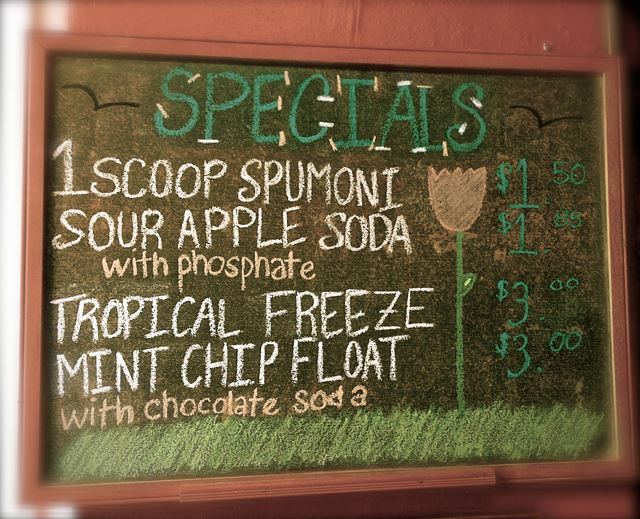 SPECIALS
1 SCOOP SPUMONI $1.50
SOUR APPLE SODA $1.85
with phosphate
TROPICAL FREEZE $3.00
MINT CHIP FLOAT $3.00
with chocolate soda